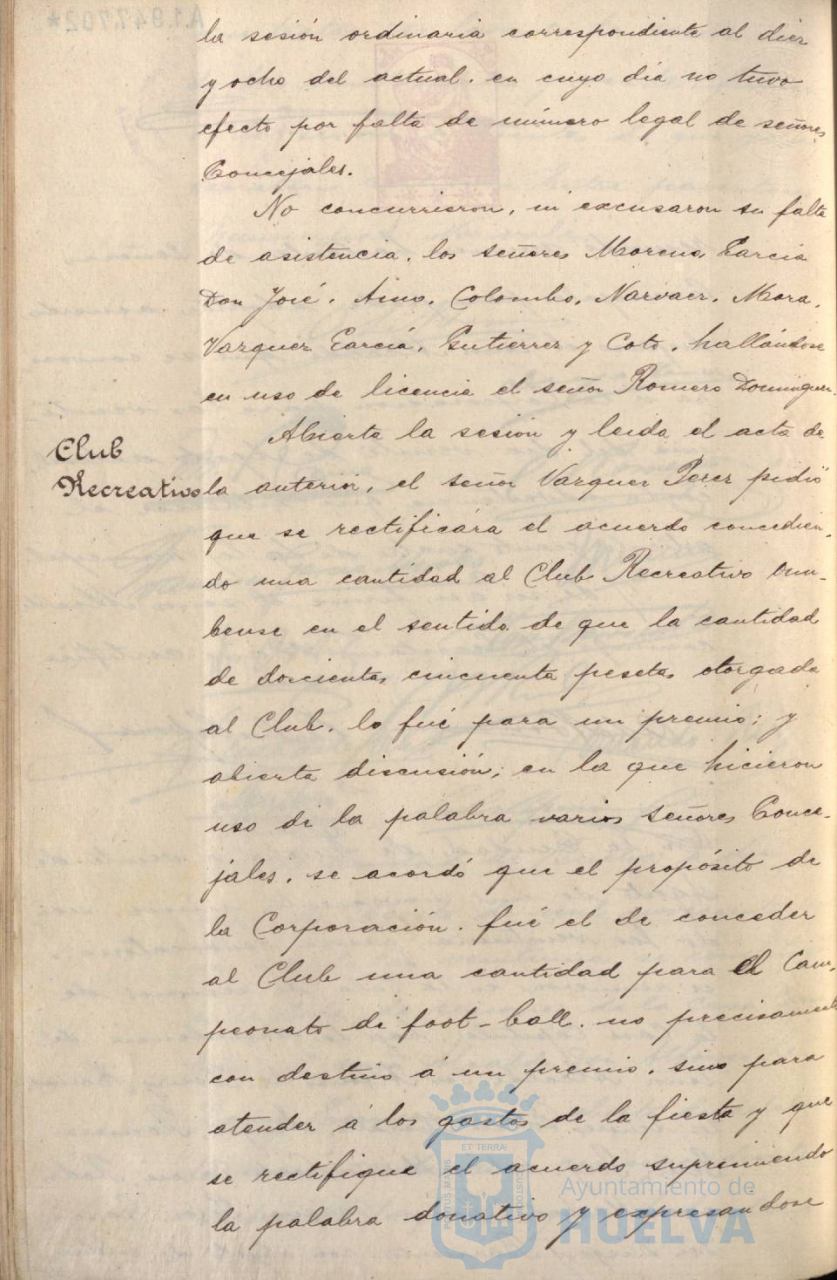 la sesión ordinaria correspondiente al diez
y ocho del actual, en cuyo día no tuvo
efecto por falta de número legal de señores
Concejales.
No concurrieron, ni excusaron su falta
de asistencia, los señores Moreno Garcia
Don José, Colombo, Narvaez, Mora,
Vazquez García, Gutiérrez y Coto, hallándose
en uso de licencia el señor Romero Dominguez.
Abierta la sesión y leida el acta de
Club
Recreativo
la anterior, el señor Vazquez Perez pidió
que se rectificára el acuerdo concedien-
do una cantidad al Club Recreativo Onu-
bense en el sentido de que la cantidad
de doscientas cincuenta pesetas otorgada
al Club, lo fué para un premio; y
abierta discusión, en la que hicieron
uso de la palabra varios señores Conce-
jales, se acordó que el propósito de
la Corporación, fué el de conceder
al Club una cantidad para el Cam-
peonato de foot-ball, no precisamente
con destino á un premio, sino para
atender á los gastos de la fiesta y que
se rectifique el acuerdo suprimiendo
la palabra donativo y expresandose
A1.947.702*
ET TERRÆ
Ayuntamiento de
HUELVA